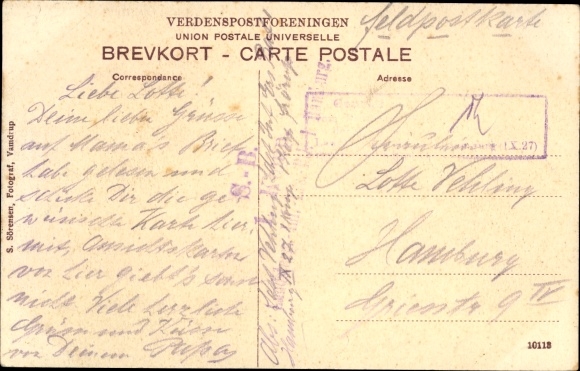 VERDENSPOSTFORENINGEN
UNION POSTALE UNIVERSELLE
BREVKORT - CARTE POSTALE
Feldpostkarte
Correspondance
Adresse
Liebe Lotte!
Deine liebe Grüsse
auf Mama's Brief
habe gelesen und
schicke Dir die ge-
wünschte Karte hier
mit, Ansichtskarten
von hier giebt's sonst
nicht. Viele herzliche
Grüsse und Küsse
von Deinem Papa
S. Sörensen, Fotograf, Vamdrup
Abs.
Hamburg IX 27.
S. B.
(IX.27)
Fräulein
Lotte Vehling
Hamburg
Grienstr 9 IV
10113